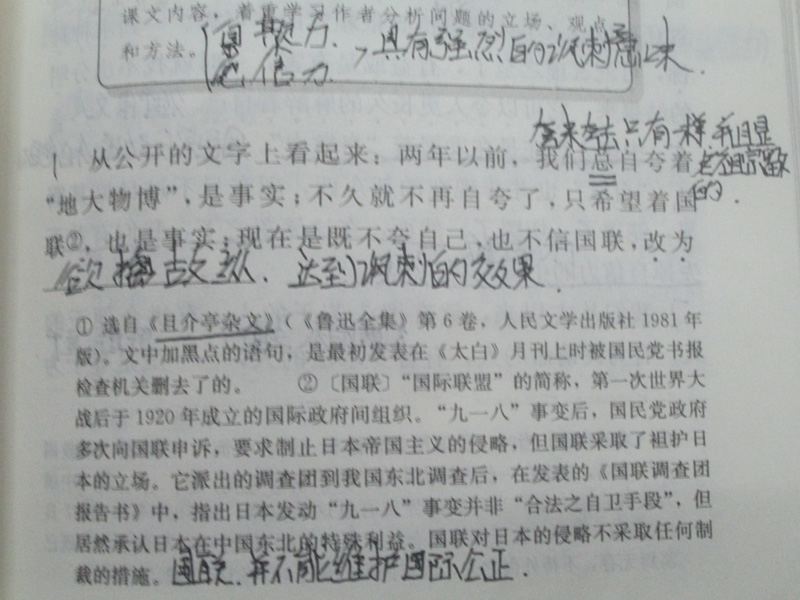 课文内容，着重学习作者分析问题的立场、观点
和方法。
具有强烈的讽刺意味.
1 从公开的文字上看起来：两年以前，我们总自夸着
“地大物博”，是事实；不久就不再自夸了，只希望着国
联②，也是事实；现在是既不夸自己，也不信国联，改为
欲擒故纵. 达到讽刺的效果.
① 选自《且介亭杂文》（《鲁迅全集》第 6 卷，人民文学出版社 1981 年
版）。文中加黑点的语句，是最初发表在《太白》月刊上时被国民党书报
检查机关删去了的。 ②〔国联〕“国际联盟”的简称，第一次世界大
战后于 1920 年成立的国际政府间组织。“九一八”事变后，国民党政府
多次向国联申诉，要求制止日本帝国主义的侵略，但国联采取了袒护日
本的立场。它派出的调查团到我国东北调查后，在发表的《国联调查团
报告书》中，指出日本发动“九一八”事变并非“合法之自卫手段”，但
居然承认日本在中国东北的特殊利益。国联对日本的侵略不采取任何制
裁的措施。
国联 并不能维护国际公正.